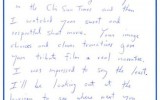 in the Chi Sun Times and then
I watched your sweet and
respectful short movie. Your image
choices and clever transitions gave
your tribute film a real
I was impressed to say the least.
I'll be looking out at the
to see where want you